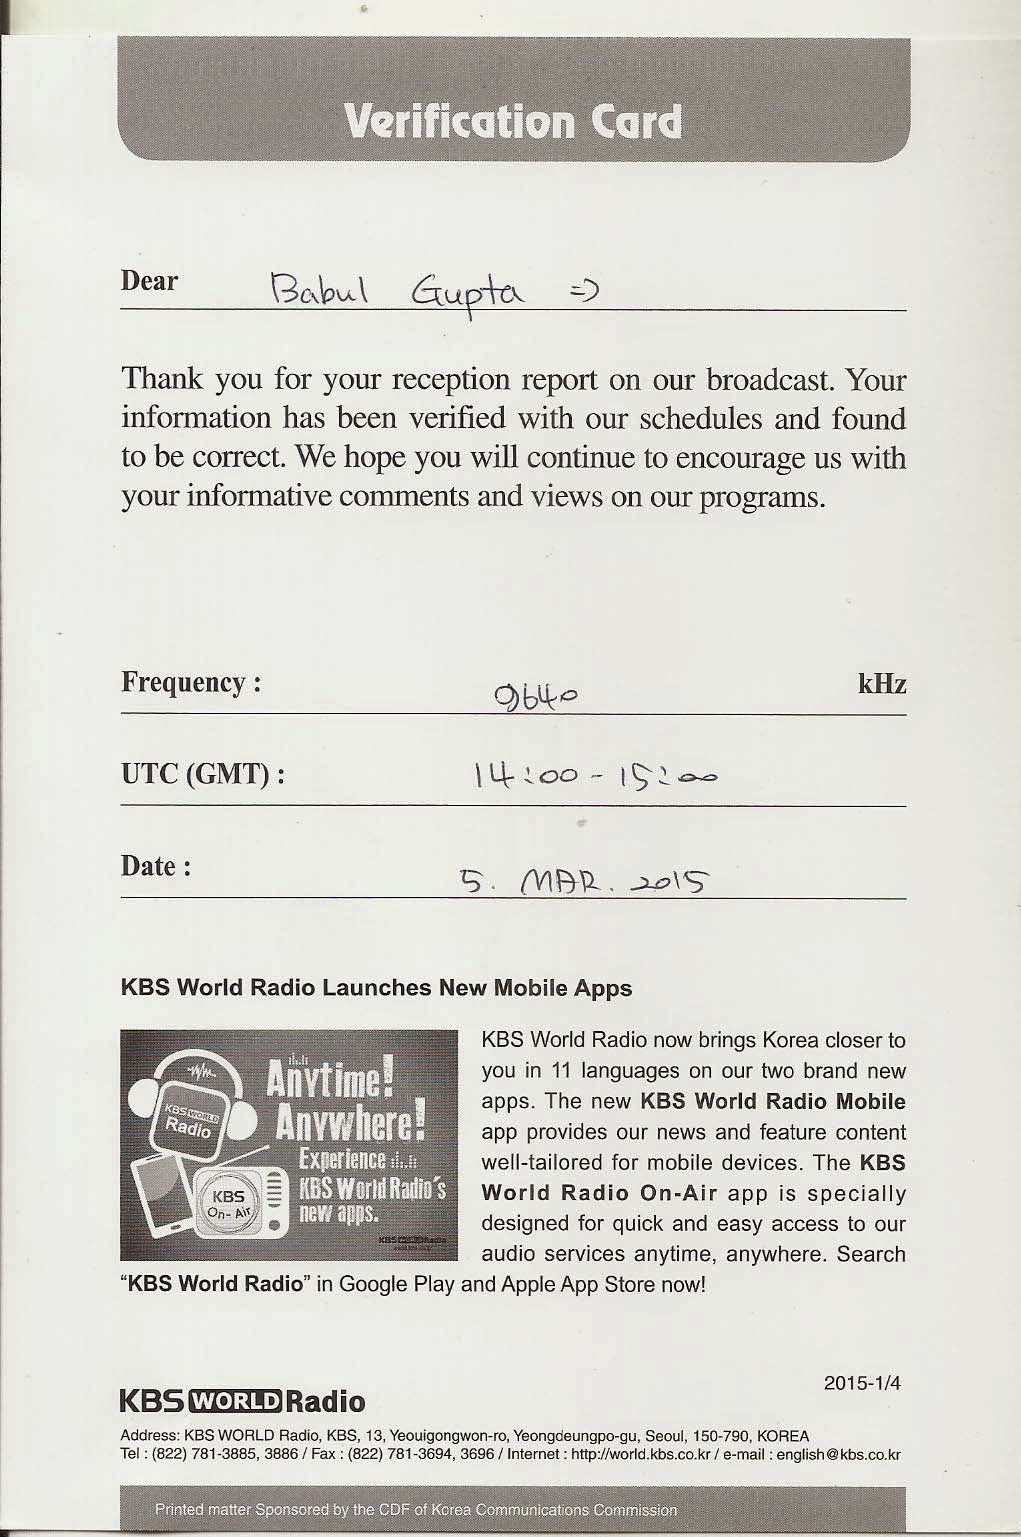 Verification Card
Dear Babul Gupta =)
Thank you for your reception report on our broadcast. Your
information has been verified with our schedules and found
to be correct. We hope you will continue to encourage us with
your informative comments and views on our programs.
Frequency : 9640 kHz
UTC (GMT) : 14:00 - 15:00
Date : 5. MAR. 2015
KBS World Radio Launches New Mobile Apps
Anytime!
Anywhere!
Experience
KBS World Radio's
new apps.
KBS WORLD
Radio
KBS
On-Air
KBS WORLD Radio
KBS World Radio now brings Korea closer to
you in 11 languages on our two brand new
apps. The new KBS World Radio Mobile
app provides our news and feature content
well-tailored for mobile devices. The KBS
World Radio On-Air app is specially
designed for quick and easy access to our
audio services anytime, anywhere. Search
“KBS World Radio” in Google Play and Apple App Store now!
2015-1/4
KBS WORLD Radio
Address: KBS WORLD Radio, KBS, 13, Yeouigongwon-ro, Yeongdeungpo-gu, Seoul, 150-790, KOREA
Tel : (822) 781-3885, 3886 / Fax : (822) 781-3694, 3696 / Internet : http://world.kbs.co.kr / e-mail : english@kbs.co.kr
Printed matter Sponsored by the CDF of Korea Communications Commission